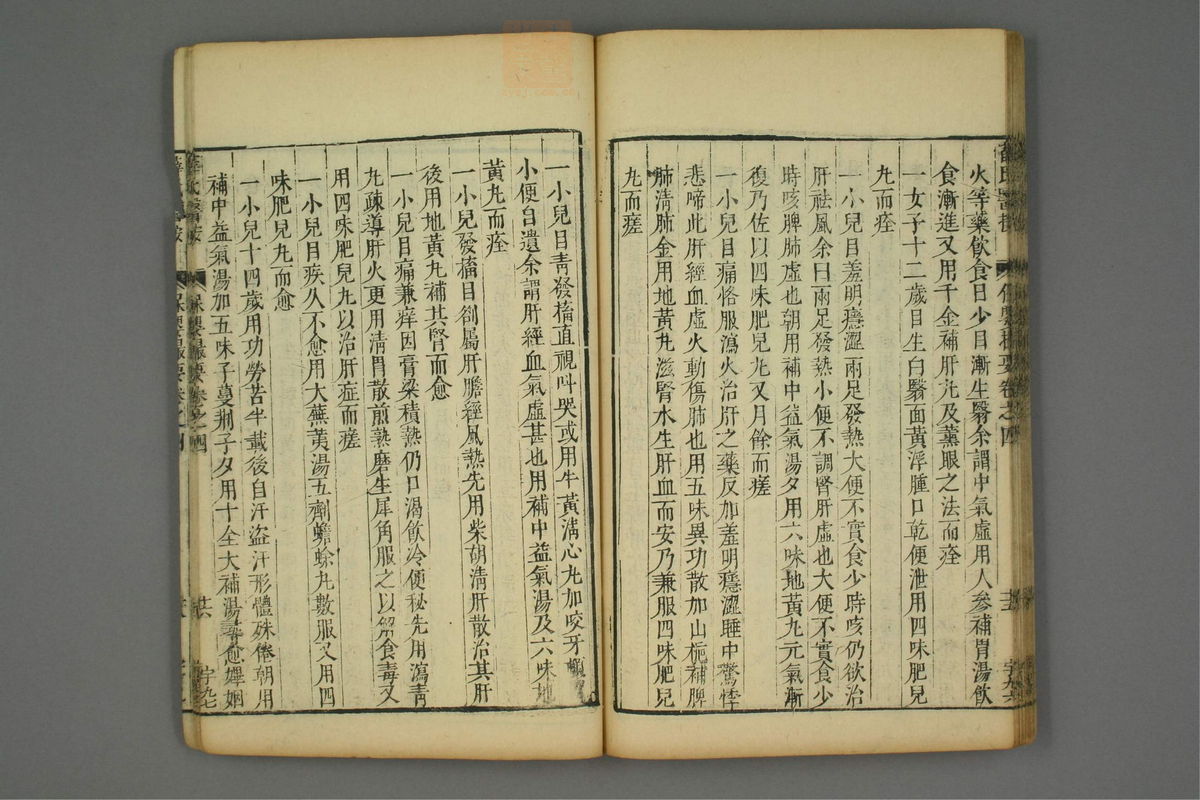 火等藥飲食日少目漸生翳余謂中氣虛用人參補胃湯飲
食漸進又用千金補肝丸及薰眼之法而痊
一女子十二歲目生白翳面黃浮腫口乾便泄用四味肥兒
丸而痊
一小兒目羞明癮澀兩足發熱大便不實食少時咳仍欲治
肝祛風余曰兩足發熱小便不調腎肝虛也大便不實食少
時咳脾肺虛也朝用補中益氣湯夕用六味地黃丸元氣漸
復乃佐以四味肥兒丸又月餘而瘥
一小兒目痛恪服瀉火治肝之藥反加羞明癮澀睡中驚悸
悲啼此肝經血虛火動傷肺也用五味異功散加山梔補脾
肺清肺金用地黃丸滋腎水生肝血而安乃兼服四味肥兒
丸而瘥
一小兒目青發搐直視呌哭或用牛黃淸心丸加咬牙頓
小便自遺余謂肝經血氣虛甚也用補中益氣湯及六味地
黃丸而痊
一小兒發搐目劄屬肝膽經風熱先用柴胡清肝散治其肝
後用地黃丸補其腎而愈
一小兒目痛兼痒因膏粱積熱仍口渴飲冷便秘先用瀉青
丸疎導肝火更用清胃散煎熟磨生犀角服之以解食毒又
用四味肥兒丸以治肝症而瘥
一小兒目疾久不愈用大蕪荑湯五劑蟾蜍丸數服又用四
味肥兒丸而愈
一小兒十四歲用功勞苦半載後自汗盜汗形體殊倦朝用
補中益氣湯加五味子蔓荊子夕用十全大補湯尋愈娶姻
薛氏醫按 保嬰撮要卷之四 廿六 字九七